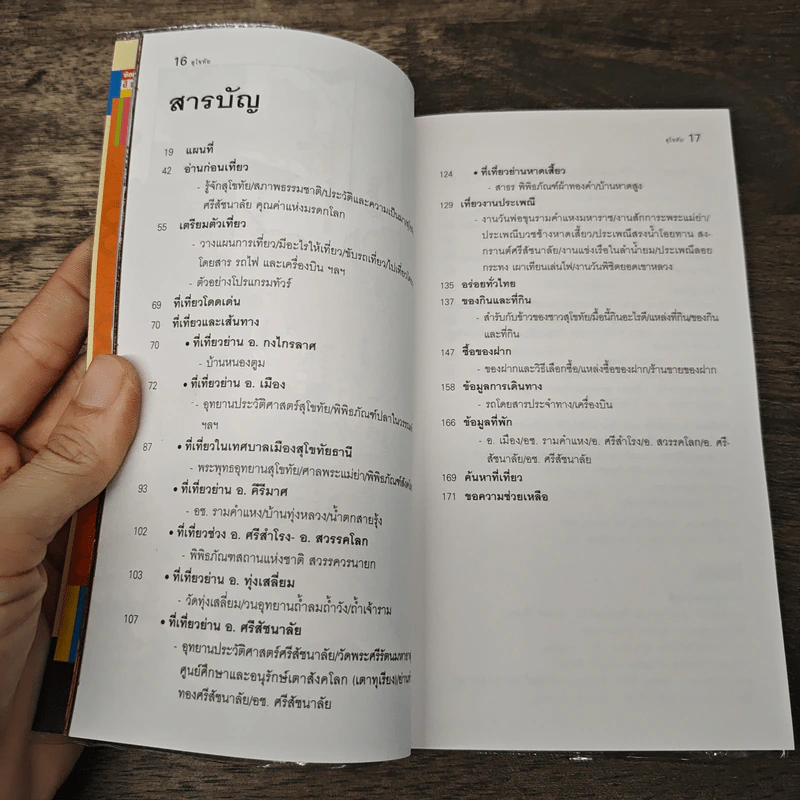 16 สุโขทัย
สารบัญ
19 แผนที่
42 อ่านก่อนเที่ยว
- รู้จักสุโขทัย/สภาพธรรมชาติ/ประวัติและความเป็นมา
ศรีสัชนาลัย คุณค่าแห่งมรดกโลก
55 เตรียมตัวเที่ยว
- วางแผนการเที่ยว/มีอะไรให้เที่ยว/ขับรถเที่ยว/ไปเที่ยว
โดยสาร รถไฟ และเครื่องบิน ฯลฯ
- ตัวอย่างโปรแกรมทัวร์
69 ที่เที่ยวโดดเด่น
70 ที่เที่ยวและเส้นทาง
70 • ที่เที่ยวย่าน อ. กงไกรลาศ
- บ้านหนองตูม
72 • ที่เที่ยวย่าน อ. เมือง
- อุทยานประวัติศาสตร์สุโขทัย/พิพิธภัณฑ์ปลาใน
ฯลฯ
87 • ที่เที่ยวในเทศบาลเมืองสุโขทัยธานี
- พระพุทธอุทยานสุโขทัย/ศาลพระแม่ย่า/พิพิธภัณฑ์
93 • ที่เที่ยวย่าน อ. คีรีมาศ
- อช. รามคำแหง/บ้านทุ่งหลวง/น้ำตกสายรุ้ง
102 • ที่เที่ยวช่วง อ. ศรีสำโรง- อ. สวรรคโลก
- พิพิธภัณฑสถานแห่งชาติ สวรรควรนายก
103 • ที่เที่ยวย่าน อ. ทุ่งเสลี่ยม
- วัดทุ่งเสลี่ยม/วนอุทยานถ้ำลมถ้ำวัง/ถ้ำเจ้าราม
107 • ที่เที่ยวย่าน อ. ศรีสัชนาลัย
- อุทยานประวัติศาสตร์ศรีสัชนาลัย/วัดพระศรีรัตนมหาธาตุ
ศูนย์ศึกษาและอนุรักษ์เตาสังคโลก (เตาทุเรียง)/ย่าน
ทองศรีสัชนาลัย/อช. ศรีสัชนาลัย
สุโขทัย 17
124 • ที่เที่ยวย่านหาดเสี้ยว
- สาธร พิพิธภัณฑ์ผ้าทองคำ/บ้านหาดสูง
129 เที่ยวงานประเพณี
- งานวันพ่อขุนรามคำแหงมหาราช/งานสักการะพระแม่ย่า/
ประเพณีบวชช้างหาดเสี้ยว/ประเพณีสรงน้ำโอยทาน สง-
กรานต์ศรีสัชนาลัย/งานแข่งเรือในลำน้ำยม/ประเพณีลอย
กระทง เผาเทียนเล่นไฟ/งานวันพิชิตยอดเขาหลวง
135 อร่อยทั่วไทย
137 ของกินและที่กิน
- สำรับกับข้าวของชาวสุโขทัย/มื้อนี้กินอะไรดี/แหล่งที่กิน/ของกิน
และที่กิน
147 ซื้อของฝาก
- ของฝากและวิธีเลือกซื้อ/แหล่งซื้อของฝาก/ร้านขายของฝาก
158 ข้อมูลการเดินทาง
- รถโดยสารประจำทาง/เครื่องบิน
166 ข้อมูลที่พัก
- อ. เมือง/อช. รามคำแหง/อ. ศรีสำโรง/อ. สวรรคโลก/อ. ศรี-
สัชนาลัย/อช. ศรีสัชนาลัย
169 ค้นหาที่เที่ยว
171 ขอความช่วยเหลือ